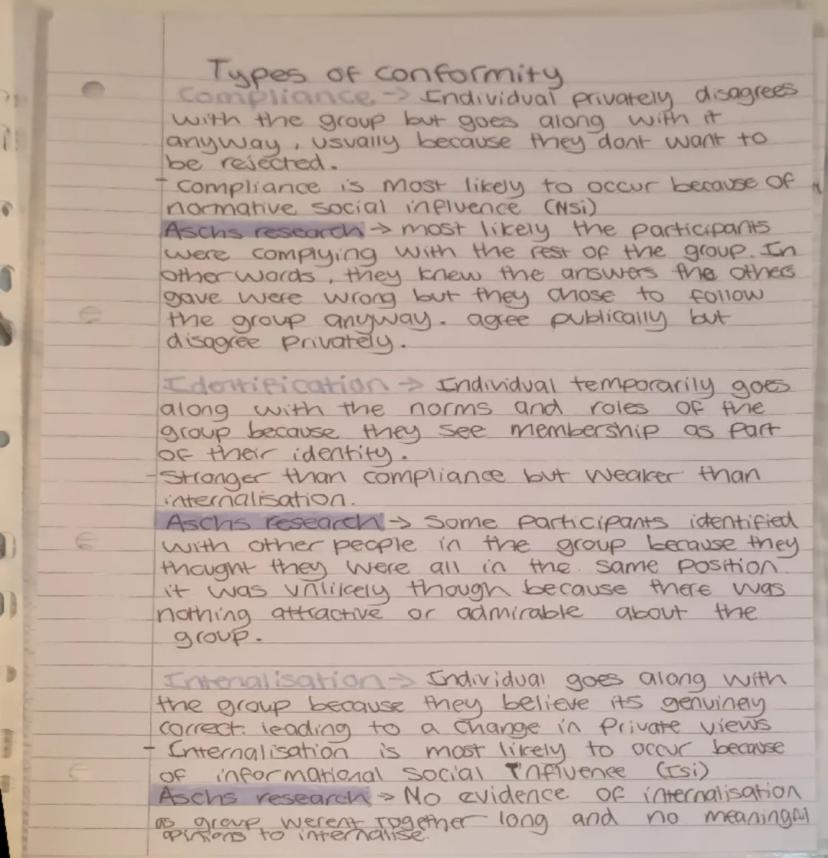 Types of conformity
Compliance → Individual privately disagrees
with the group but goes along with it
anyway, usually because they dont want to
be rejected.
- Compliance is most likely to occur because of
normative social influence (NSi)
Aschs research → most likely the participants
were complying with the rest of the group. In
other words, they knew the answers the others
gave were wrong but they chose to follow
the group anyway. agree publically but
disagree privately.
Identification → Individual temporarily goes
along with the norms and roles of the
group because they see membership as part
of their identity.
- Stronger than compliance but weaker than
internalisation.
Aschs research → Some participants identified
with other people in the group because they
thought they were all in the same position.
it was unlikely though because there was
nothing attractive or admirable about the
group.
Internalisation → Individual goes along with
the group because they believe its genuinely
correct. leading to a change in private views
- Internalisation is most likely to occur because
of informational social influence (Isi)
Aschs research → No evidence of internalisation
as group werent together long and no meaningful
opinions to internalise.